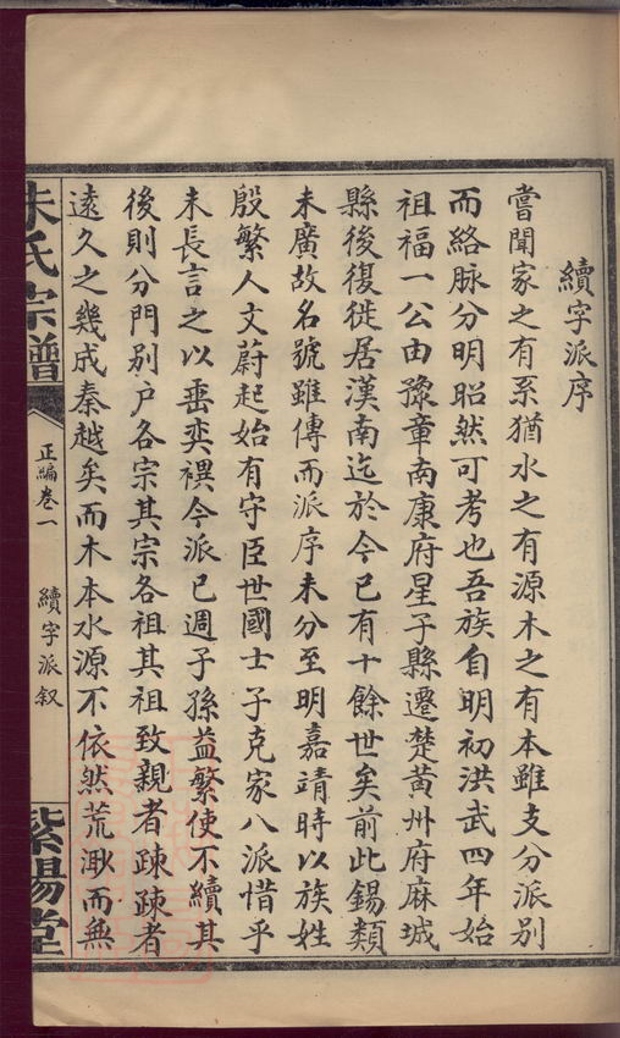 續字派序
嘗聞家之有系猶水之有源木之有本雖支分派別
而絡脉分明昭然可考也吾族自明初洪武四年始
祖福一公由豫章南康府星子縣遷楚黃州府麻城
縣後復徙居漢南迄於今已有十餘世矣前此錫類
未廣故名號雖傳而派序未分至明嘉靖時以族姓
殷繁人文蔚起始有守臣世國士子克家八派惜乎
未長言之以垂奕禩今派已週子孫益繁使不續其
後則分門別户各宗其宗各祖其祖致親者疎疎者
遠久之幾成秦越矣而木本水源不依然荒渺而無
朱氏宗譜
正編卷一
續字派叙
紫陽堂